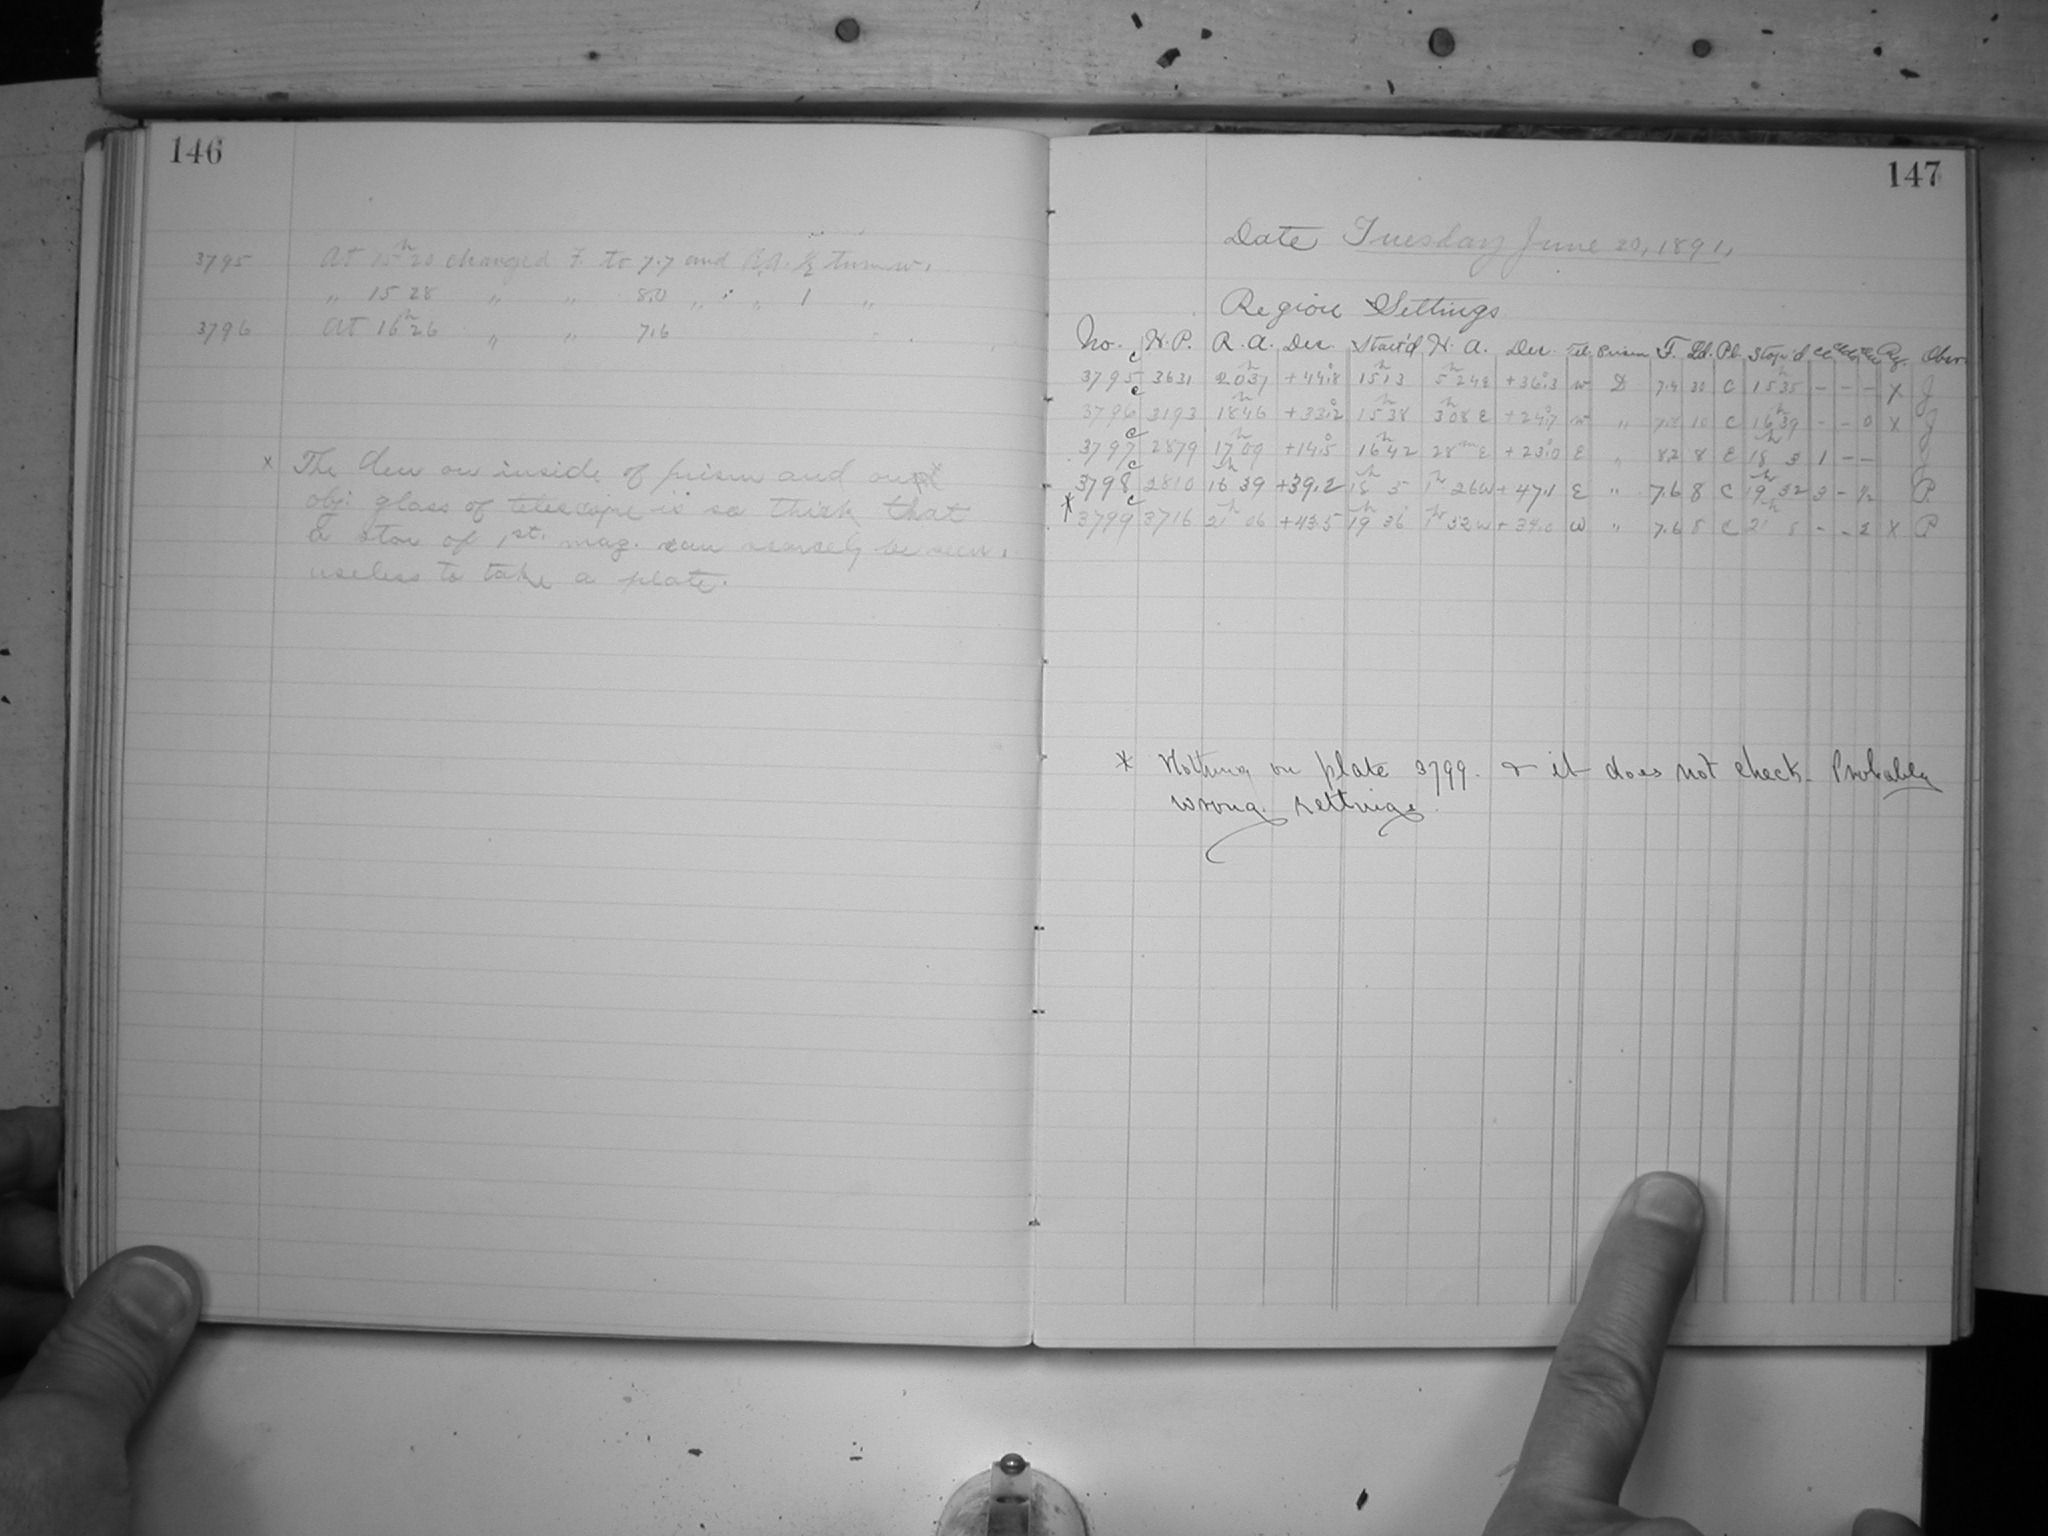 146
3795 At 15h20 changed F. to 7.7 and R.A. ½ turn w.
" 15 28 " " 8.0 " " 1 "
3796 At 16h26 " " 7.6
x The dew on inside of prism and on
obj. glass of telescope is so thick that
a star of 1st. mag. can scarcely be seen.
useless to take a plate.
147
Date Tuesday June 30, 1891,
Region Settings
No. H.P. R.A. Dec. Start'd H.A. Dec. Tel. Prism F. Ed. Pl. Stop'd Obser.
3795 c 3631 20h37 +44.8 15h13 5h24E +36.3 W D 7.4 30 C 15h35 - - - X J
3796 c 3193 18h46 +33.2 15h38 3h08E +24.7 W " 7.8 10 C 16h39 - - 0 X J
3797 c 2879 17h09 +14.5 16h42 28mE +23.0 E " 8.2 8 C 18h 3 1 - - J
3798 c 2810 16h39 +39.2 18h 5 1h26W +47.1 E " 7.6 8 C 19h32 3 - ½ P
* 3799 c 3716 21h06 +43.5 19h36 1h32W +34.0 W " 7.6 8 C 21h 8 - - 2 X P
* Nothing on plate 3799. & it does not check. Probably
wrong settings.